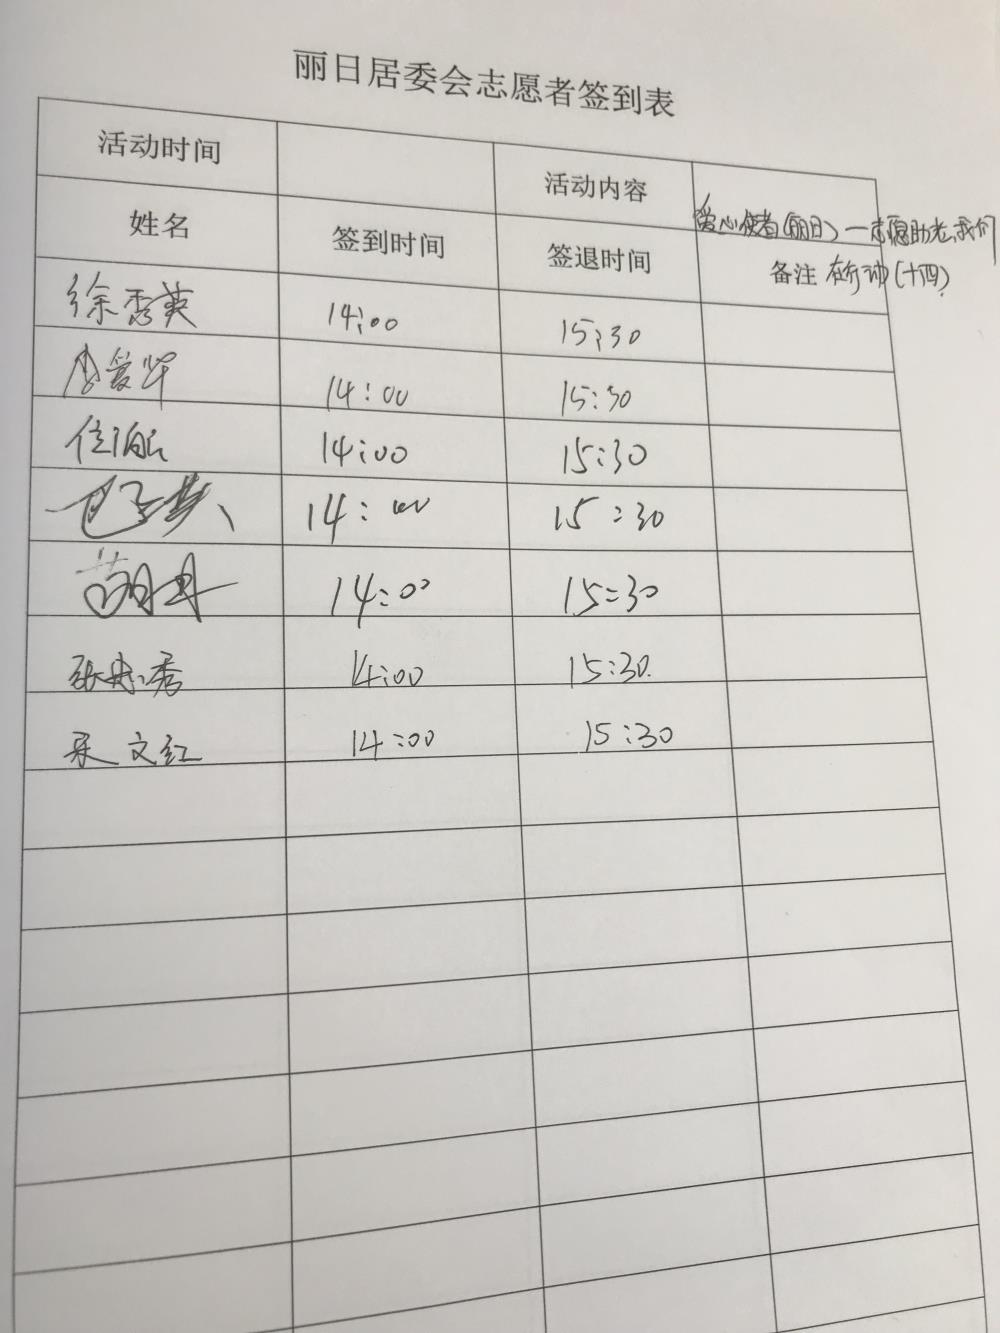 丽日居委会志愿者签到表
活动时间 活动内容
爱心使者(丽日)—志愿助老,我们
在行动(十四)
姓名 签到时间 签退时间 备注
徐秀英 14:00 15:30
李爱华 14:00 15:30
14:00 15:30
14:00 15:30
14:00 15:30
张忠秀 14:00 15:30.
宋文红 14:00 15:30